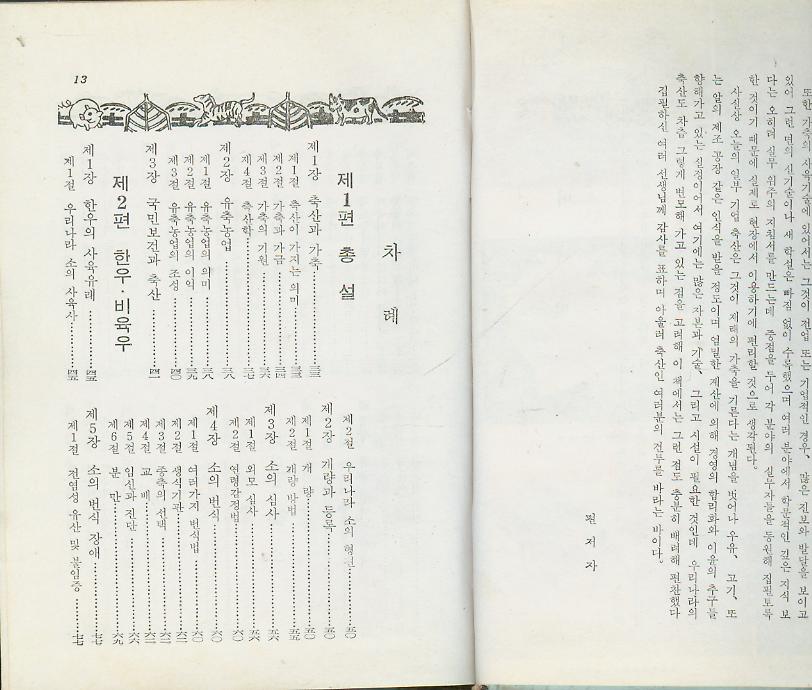 또한 가축의 사육기술에 있어서는 그것이 전업 또는 기업적인 경우, 많은 진보와 발달을 보이고
있어 그런 면의 신기술이나 새 학설은 빠짐 없이 수록했으며 여러 분야에서 학문적인 깊은 지식 보
다는 오히려 실무 위주의 지침서를 만드는데 중점을 두어 각 분야의 실무자들을 동원해 집필토록
한 것이기 때문에 실제로 현장에서 이용하기에 편리할 것으로 생각된다.
사실상 오늘의 일부 기업 축산은 그것이 재래의 가축을 기른다는 개념을 벗어나 우유, 고기, 또
는 알의 제조 공장 같은 인식을 받을 정도이며 면밀한 계산에 의해 경영의 합리화와 이윤의 추구를
향해가고 있는 실정이어서 여기에는 많은 자본과 기술, 그리고 시설이 필요한 것인데 우리나라의
축산도 차츰 그렇게 변모해 가고 있는 점을 고려해 이 책에서는 그런 점도 충분히 배려해 편찬했다
집필하신 여러 선생님께 감사를 표하며 아울러 축산인 여러분의 건투를 바라는 바이다.
편 저 자
13
차 례
제1편 총 설
제1장 축산과 가축 三三
제1절 축산이 가지는 의미 三三
제2절 가축과 가금 三四
제3절 가축의 기원 三六
제4절 축산학 三七
제2장 유축농업 三八
제1절 유축농업의 의미 三八
제2절 유축농업의 이익 三九
제3절 유축농업의 조성 四〇
제3장 국민보건과 축산 四一
제2편 한우·비육우
제1장 한우의 사육유래 四五
제1절 우리나라 소의 사육사 四五
제2절 우리나라 소의 五〇
제2장 개량과 등록 五〇
제1절 개 량 五〇
제2절 개량 방법 五五
제3장 소의 심사 五六
제1절 외모 심사 五六
제2절 연령감정법 六〇
제4장 소의 번식 六〇
제1절 여러가지 번식법 六〇
제2절 생식기관
제3절 종축의 선택
제4절 교 배
제5절 임신과 진단 六六
제6절 분 만 六九
제5장 소의 번식 장애 七七
제1절 전염성 유산 및 불임증 七七